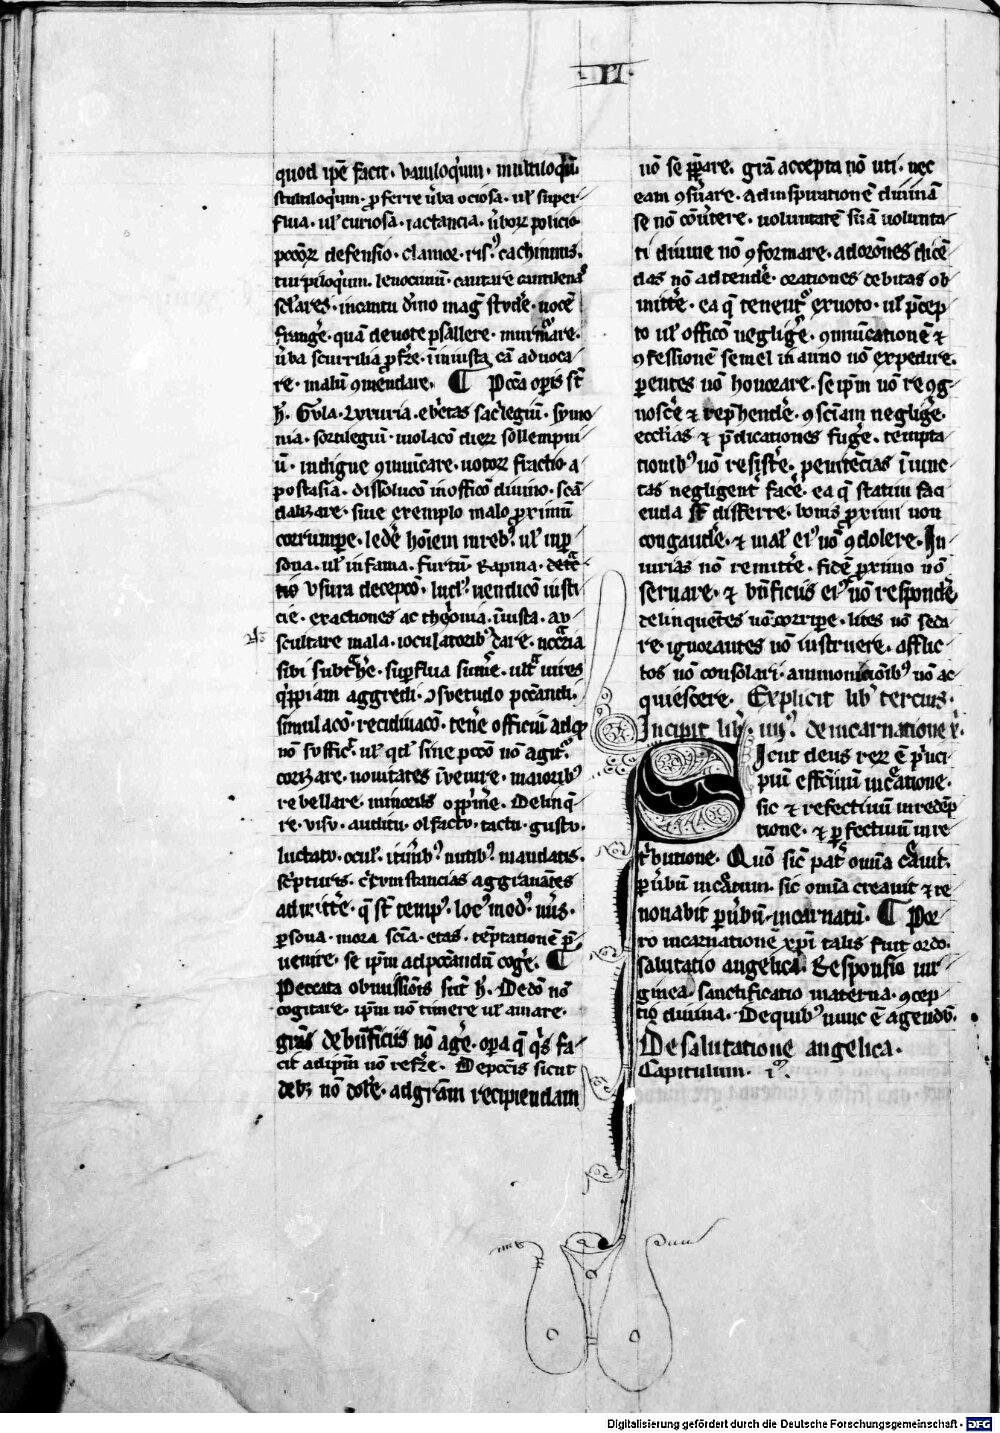 VI.
quod ipē facit. vaniloqͥum. multiloqͥū.
stultiloqͥum. proferre ūba ociosa. ul̄ super-
flua. ul̄ curiosa. iactancia. ūboꝝ policio.
pccōꝝ defensio. clamor. risꝰ. cachinnus.
turpiloqͥum. lenocinium. cantare cantilenas
sclares. in cantu dīno magͥ studēre. uocē
frangͤe. quā deuote psallere. murmurare.
ūba scurrilia proferre. iniustā cām aduoca-
re. malum ꝯmendare. ¶ Pccā oꝑis st̄
h̄. Gula. Luxuria. ebͥetas sacͥlegiū. symo-
nia. sortilegiū. uiolacō dieꝝ sollempni-
ū. indigne ꝯmūicare. uotoꝝ fractio. a-
postasia. dissolucō in officō diuino. scan-
dalizare. siue exemplo malo proximū
corrumpere. ledͤe hoīem in rebꝰ. ul̄ in per-
sona. ul̄ in fama. furtū. Rapina. 
tio usura decepcō. ludꝰ. uendicō iusti-
cie. exactiones ac theͦlonia. iniusta. au-
scultare mala. ioculatoribꝰ dare. nccāria
sibi subtͣhͤe. suꝑflua sumͤe. ultͣ uires
qͥpiam aggredi. ꝯsuetudo pccandi.
simulacō. recidiuacō. tenͤe officiū ad qͦ
nō sufficͭ. ul̄ qd̄ sine pccō nō agitͬ.
corizare. nouitates īuenire. maioribꝰ
rebellare. minores opͥmͤe. Delinqͤ-
re. uisu. auditu. olfactu. tactu. gustu.
luctatu. ocul̄. nutibꝰ. mandatis.
scͥpturis. cͥcumstancias aggrauantes
admittͤe. q̄ st̄ tempꝰ. locꝰ modꝰ nūs.
ꝑsona. mora scīa. etas. temptationē pͤ-
uenire. se ipm̄ ad pccandū cogͤe. ¶
Peccata obmissiōis sūt h̄. De dō nō
cogitare. ipm̄ nō timere ul̄ amare.
grās de bn̄ficiis nō agͤe. oꝑa q̄ qͥs fa-
cit ad ipm̄ nō referre. De pccīs sicut
debꝫ nō dolͤe. ad grām recipiendam
nō se pͤparare. grā accepta nō uti. nec
eam ꝯsͤuare. ad inspirationē diuinā
se nō cōuͤtere. uoluntatē suā uolunta-
ti diuine nō ꝯformare. ad orōnes dicē-
das nō attendͤe. orationes debitas ob-
mittͤe. ea q̄ tenetur ex uoto. ul̄ pͤcep-
to ul̄ officō negligͤe. ꝯmūicationē ⁊
ꝯfessionē semel in anno nō expedire.
parentes nō honorare. se ipm̄ nō recog-
noscͤe ⁊ repͤhendͤe. ꝯsciam negligͤe.
ecclīas ⁊ pͤdicationes fugͤe. tempta-
tionibꝰ nō resistͤe. penitēcias īiunc-
tas negligentͬ facͤe. ea q̄ statim faci-
enda st̄ differre. bonis proximi non
congaudͤe. ⁊ mal̄ eiꝰ nō ꝯdolere. In-
iurias nō remittͤe. fidē proximo nō
seruare. ⁊ bn̄ficiis eiꝰ nō respondͤe
delinquentes nō corripere. lites nō seda-
re. ignorantes nō instruere. afflic-
tos nō consolari. ammonicōibꝰ nō ac-
quiescere. Explicit lib̄ tercius.
Incipit lib̄. iiijꝰ. de incarnatione x̄.
Sicut deus reꝝ ē pͥnci-
pium effc̄iuū in cͤatione.
sic ⁊ refectiuū in redēp-
tione. ⁊ ꝑfectiuū in re-
tͥbutione. Quō sic patͬ omīa cͤauit.
ꝑ ūbū incͤatum. sic omīa creauit ⁊ re-
nouabit ꝑ ūbū incarnatū. ¶ Por-
ro incarnationē xp̄i talis fuit ordo.
salutatio angelica. Responsio uir-
ginea. sanctificatio materna. ꝯcep-
tio diuina. De quibꝰ nunc ē agendū.
De salutatione angelica.
Capitulum. iꝰ.
Digitalisierung gefördert durch die Deutsche Forschungsgemeinschaft - DFG